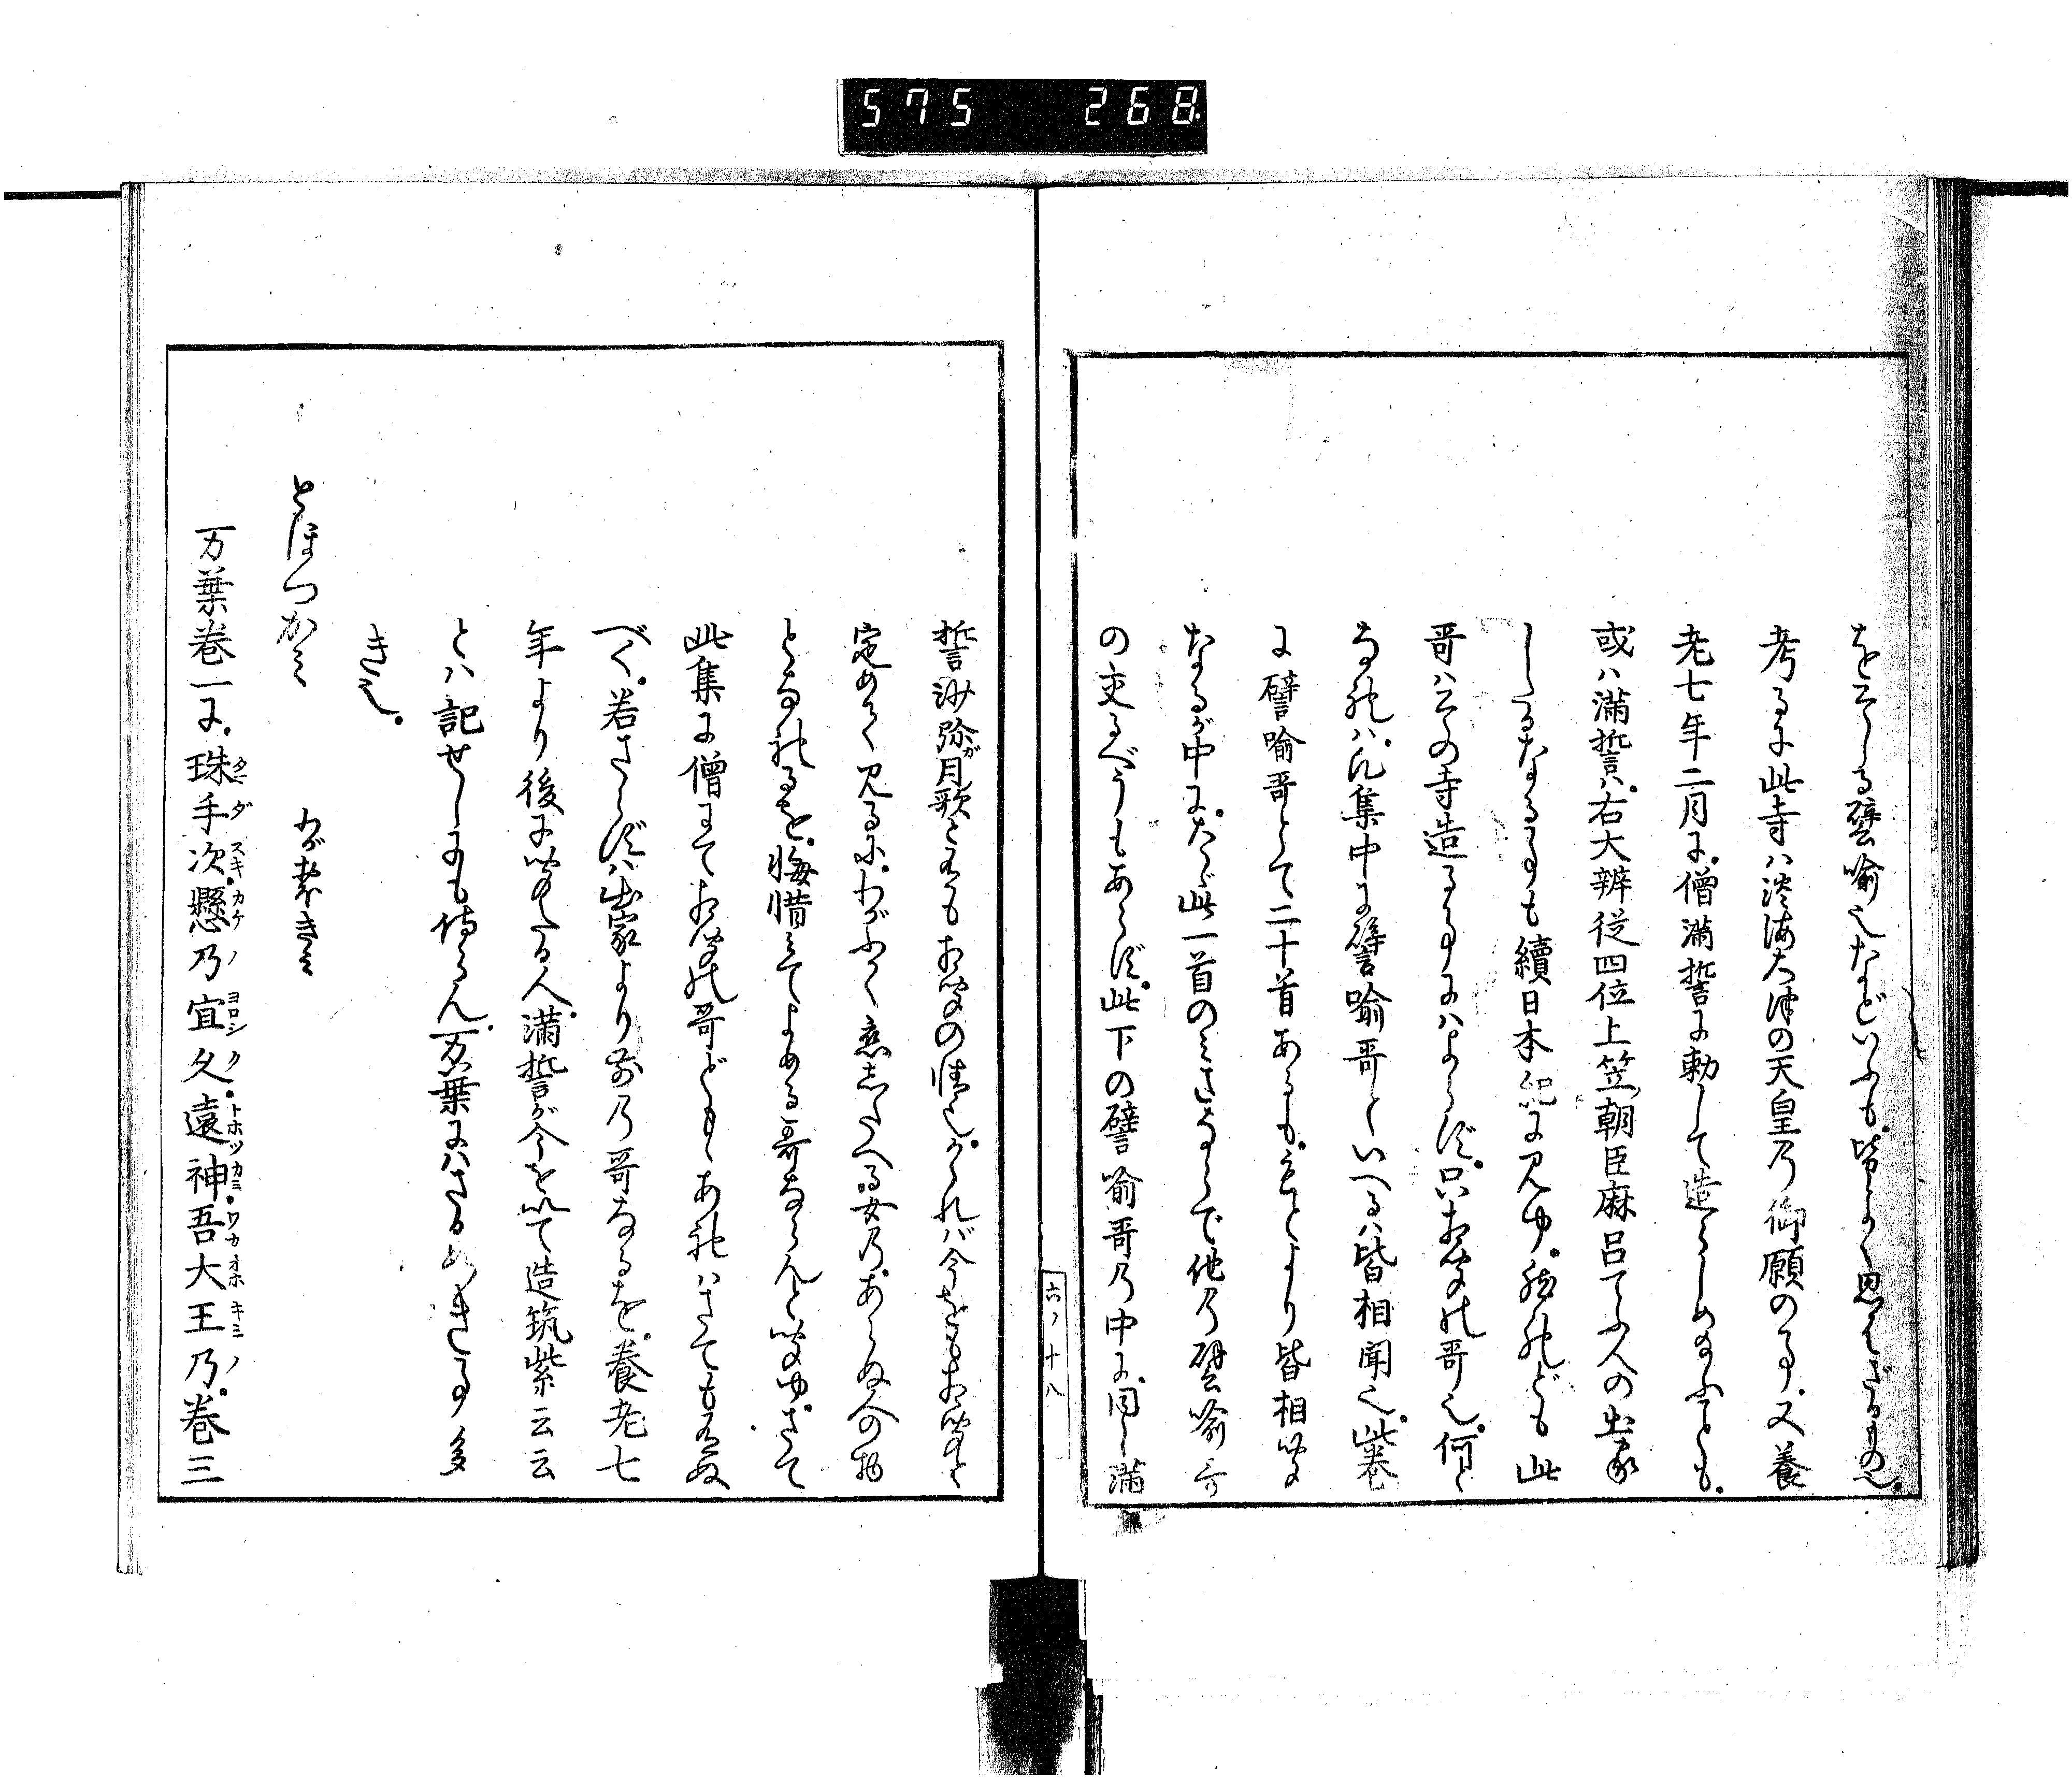 575 268
をそしる譬喩也などいふも皆よく思はざるもの也。
考るに此寺ハ淡海大津の天皇乃御願の事、又養
老七年二月に。僧満誓に勅して造らしめ給ふとも。
或ハ満誓ハ右大辨従四位上笠朝臣麻呂てふ人の出家
したるなる事も續日本紀に見ゆ。然れども此
哥ハその寺造る事にハよらず。只相聞の哥也。何と
なれハ。凡集中に譬喩哥といへるハ皆相聞也。此巻
に譬喩哥とて二十首あるも。
なるが中に。たゞ此一首のミさならで他乃譬喩哥
の交るべうもあらず。此下の譬喩哥乃中に。同し満
六ノ十八
誓沙弥が月歌とあるも相聞の情也。かゝれバ今をも相聞と
定めて見るに。わがふかく恋したへる女乃。あらぬ人の物
となれるを。悔惜ミてよめる哥ならんと聞ゆ。さて
此集に僧にて相聞の哥どもゝあれハさても有ぬ
べく。若さらずハ出家より前乃哥なるを。養老七
年より後に聞えたる人。満誓が今を以て造筑紫云云
とハ記せしにも侍らん。万葉にハさるめきる事多
き也。
とほつかミ わがおほきミ
万葉巻一に。珠手次懸乃宜久遠神吾大王乃。巻三
タマダスキ。カケノヨロシク。トホツカミ。ワカオホキミノ